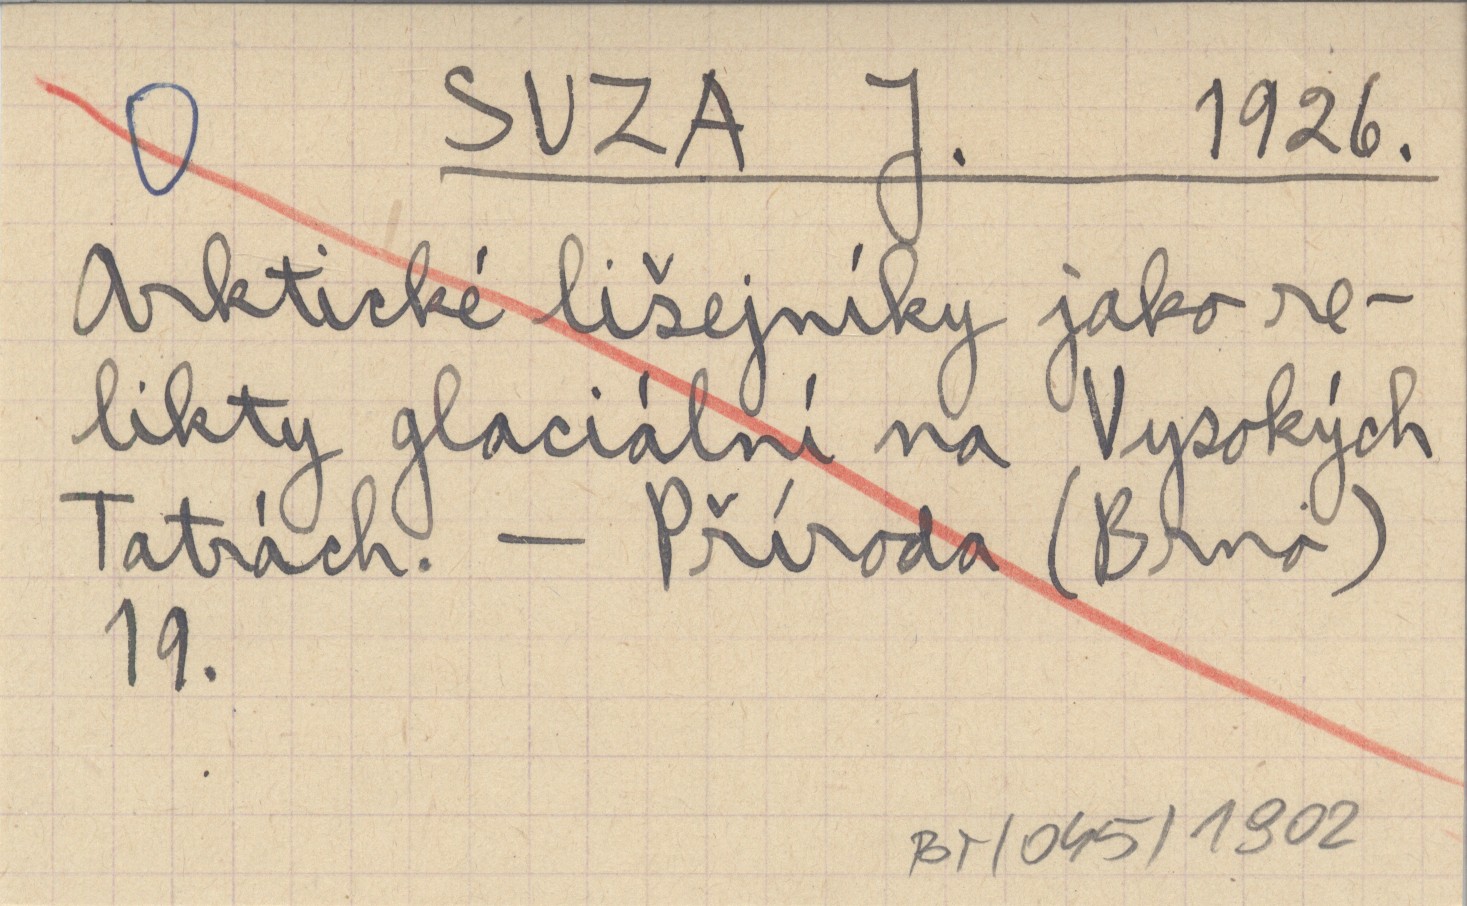 SUZA J. 1926.
Arktické lišejníky jako re-
likty glaciální na Vysokých
Tatrách. — Příroda (Brno)
19.
BT/045/1902